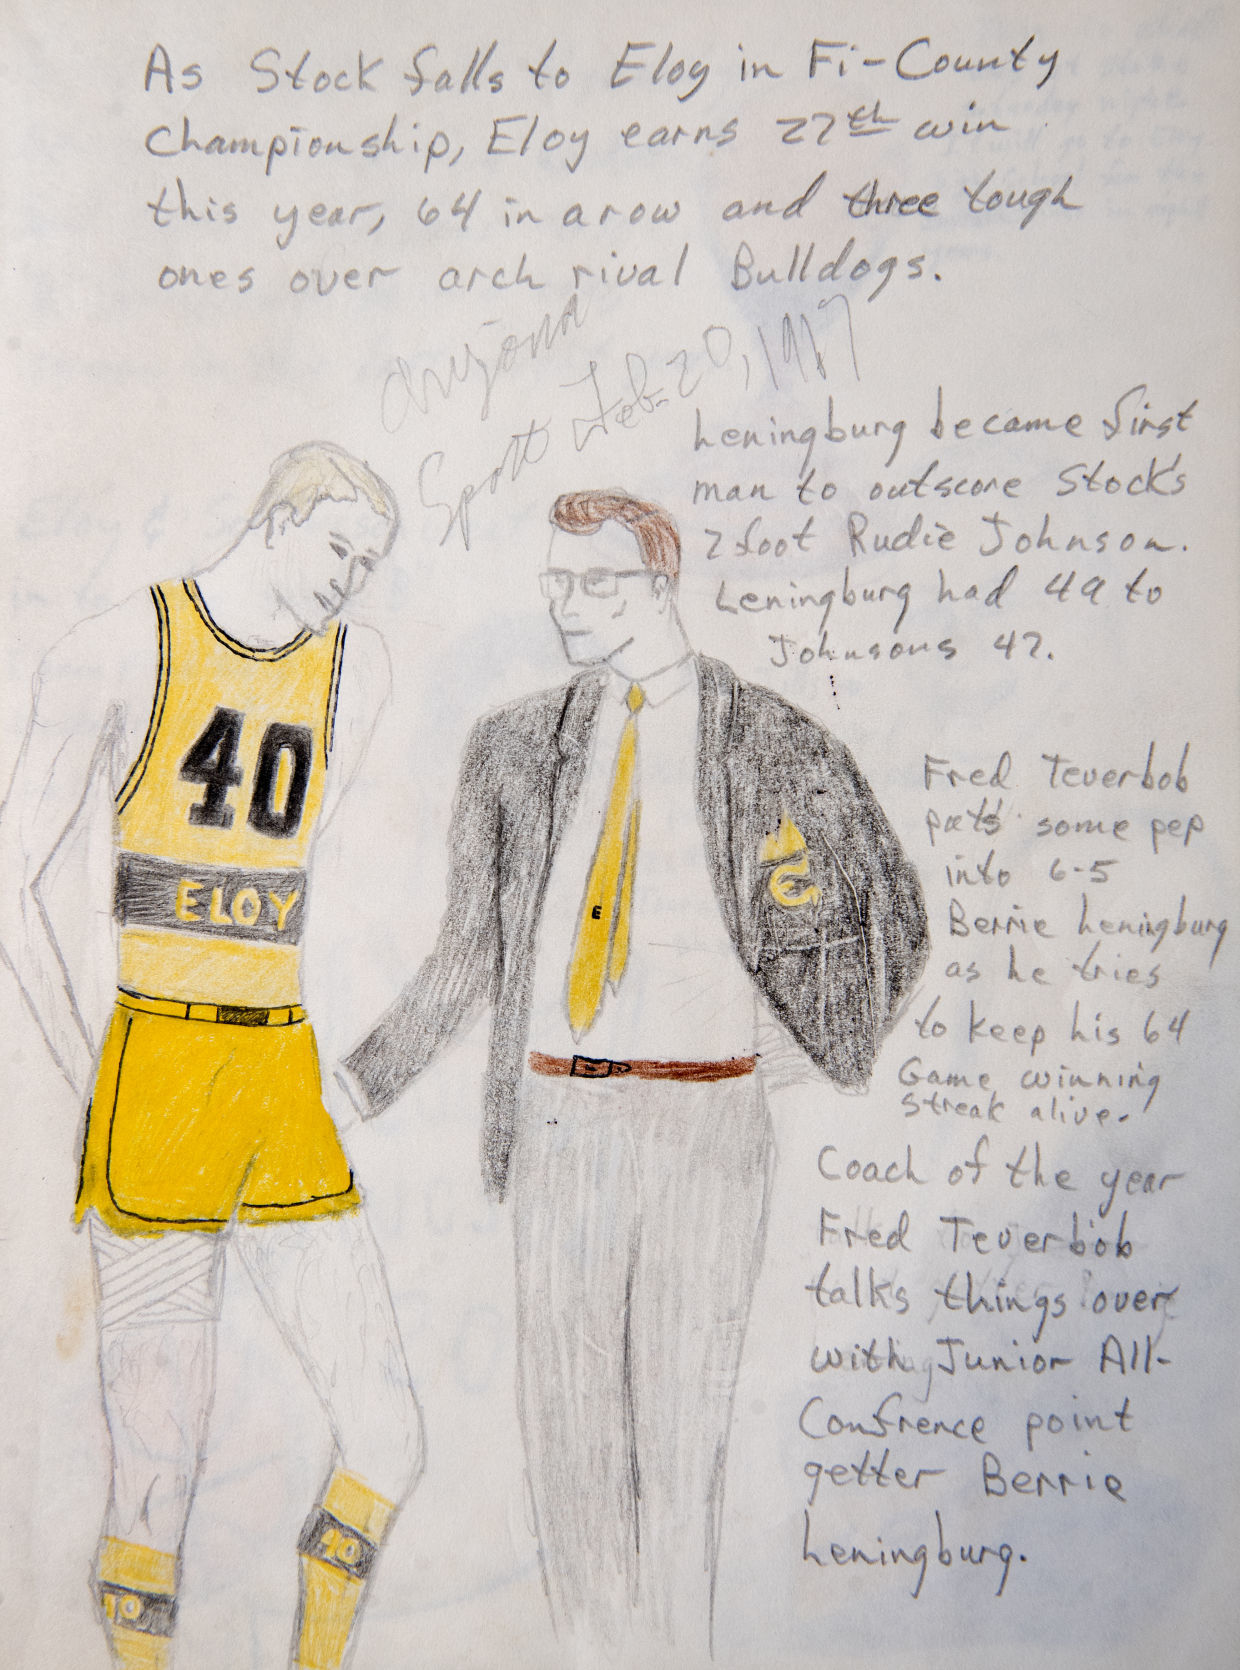 As Stock falls to Eloy in Fi-County
Championship, Eloy earns 27th win
this year, 64 in a row and three tough
ones over arch rival Bulldogs.
Arizona
Sport Feb. 20, 1917
Leningburg became first
man to outscore Stock's
7 foot Rudie Johnson.
Leningburg had 49 to
Johnsons 47.
40
ELOY
E
E
Fred Teverbob
puts some pep
into 6-5
Berrie Leningburg
as he tries
to keep his 64
Game winning
streak alive.
Coach of the year
Fred Teverbob
talks things over
with Junior All-
Confrence point
getter Berrie
Leningburg.
40
40